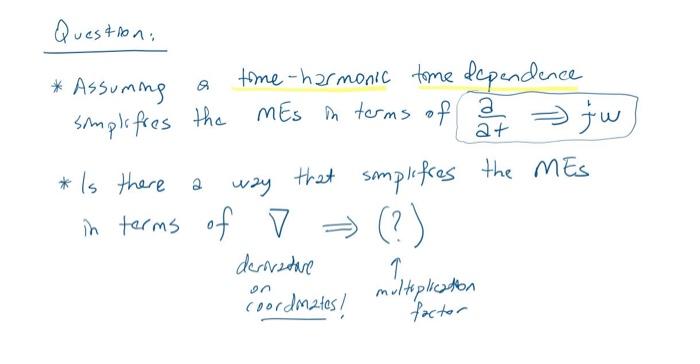 Question:
* Assuming a time-harmonic time dependence
simplifies the MEs in terms of ∂/∂t ⇒ jw
* Is there a way that simplifies the MEs
in terms of ∇ ⇒ (?)
derivative
on
coordinates!
↑
multiplication
factor